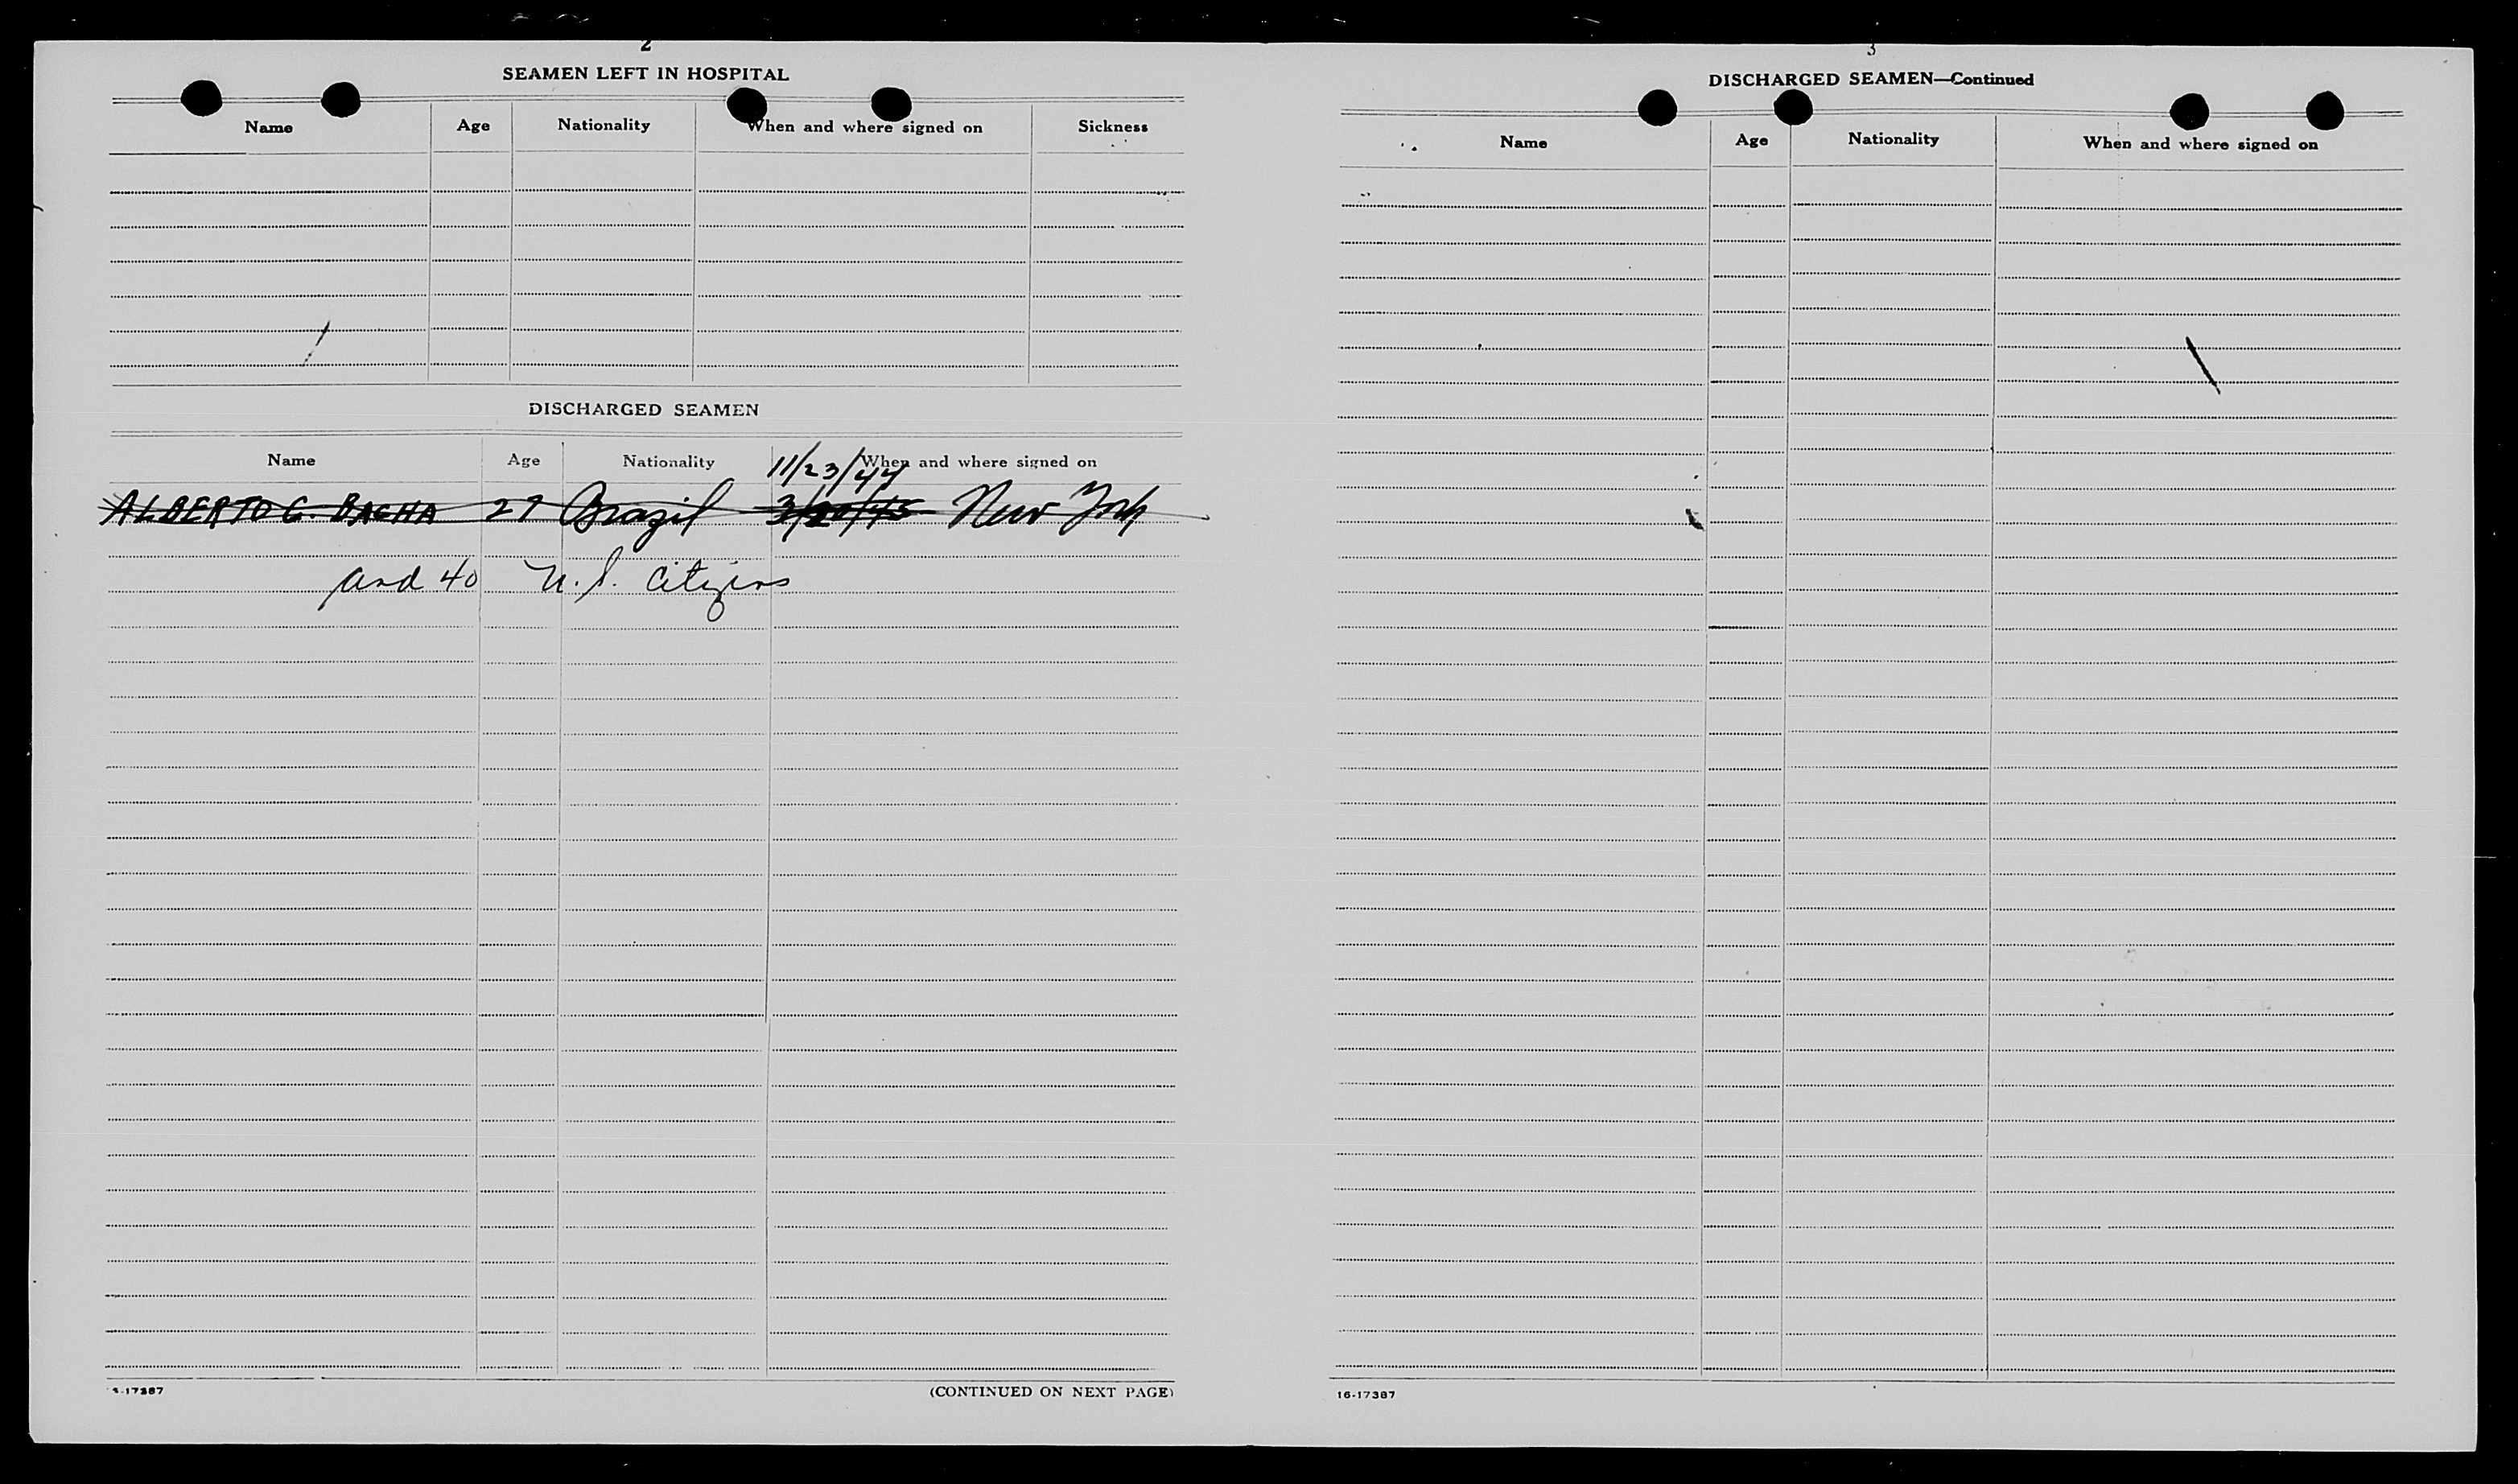 2
SEAMEN LEFT IN HOSPITAL
Name Age Nationality When and where signed on Sickness
DISCHARGED SEAMEN
Name Age Nationality When and where signed on
11/23/44
ALBERTO G. BAGHA 27 Brazil 3/20/45 New York
and 40 U.S. Citizens
16-17387
(CONTINUED ON NEXT PAGE)
3
DISCHARGED SEAMEN—Continued
Name Age Nationality When and where signed on
16-17387